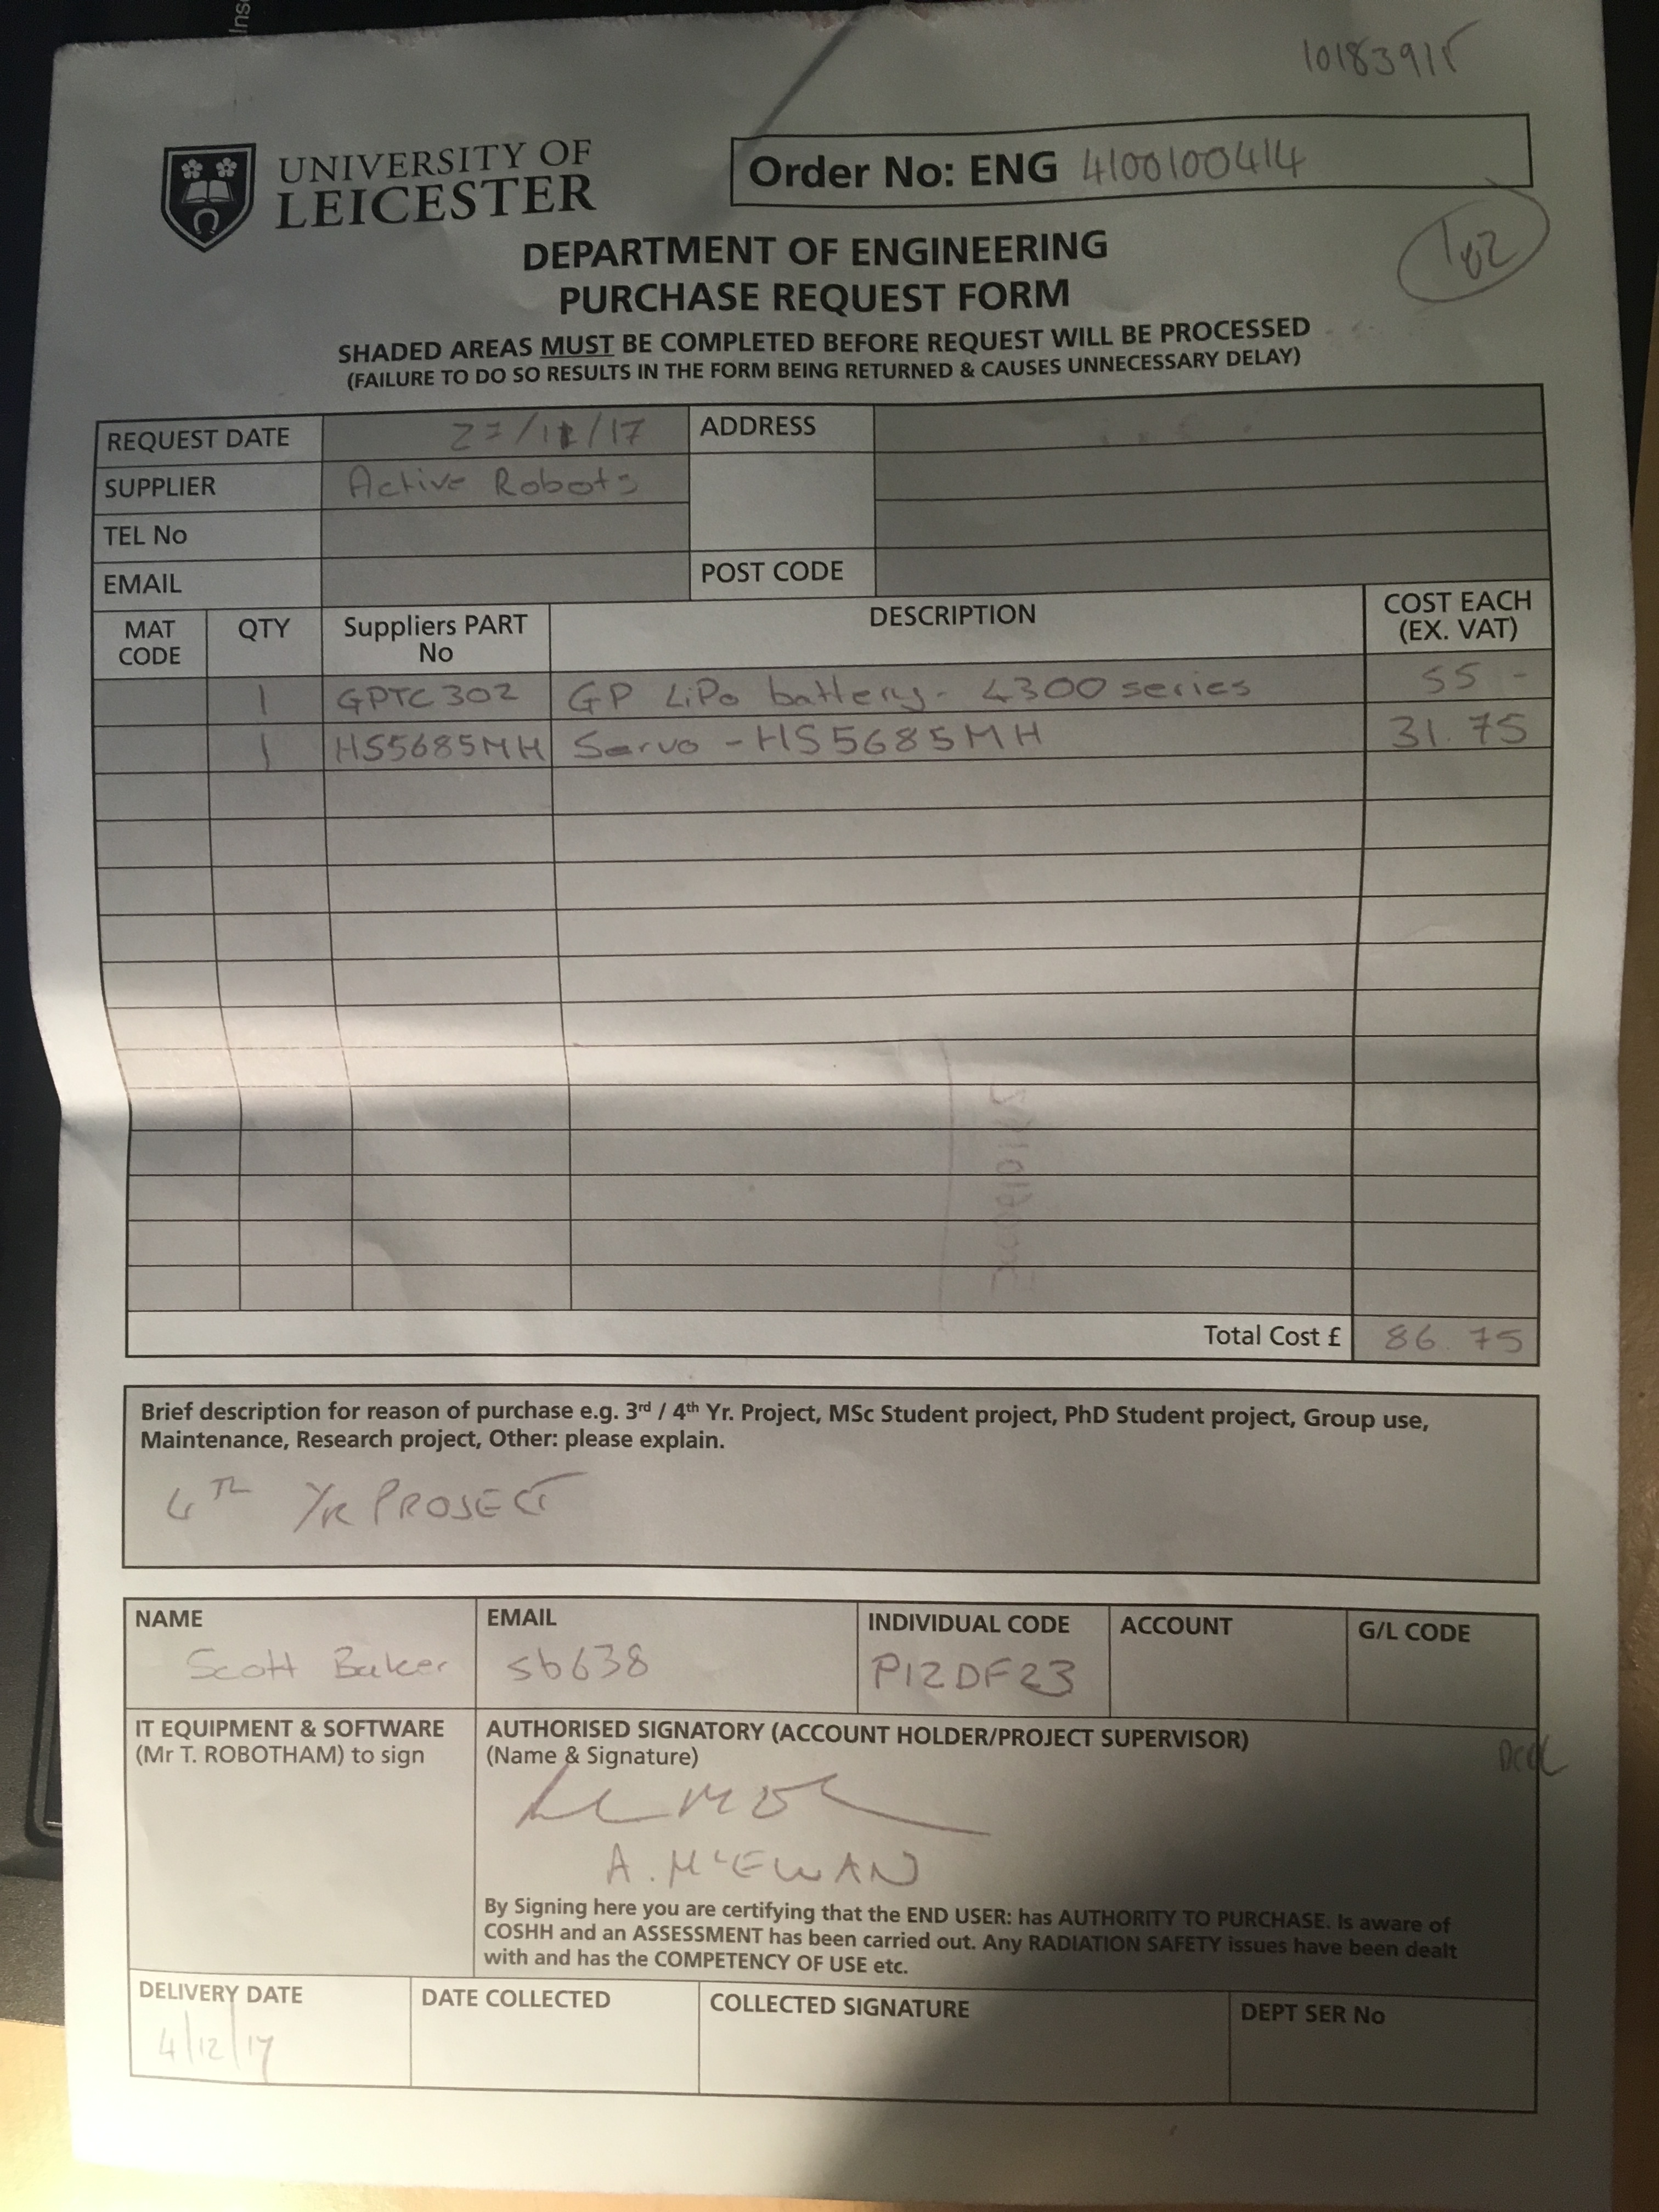 Ins
UNIVERSITY OF
LEICESTER
Order No: ENG 4100100414
DEPARTMENT OF ENGINEERING
PURCHASE REQUEST FORM
SHADED AREAS MUST BE COMPLETED BEFORE REQUEST WILL BE PROCESSED
(FAILURE TO DO SO RESULTS IN THE FORM BEING RETURNED & CAUSES UNNECESSARY DELAY)
REQUEST DATE 27/11/17 ADDRESS
SUPPLIER Active Robots
TEL No
EMAIL POST CODE
MAT CODE QTY Suppliers PART No DESCRIPTION COST EACH (EX. VAT)
1 GPTC302 GP LiPo battery - 4300 series 55 -
1 HS5685MH Servo - HS5685MH 31.75
Total Cost £ 86.75
Brief description for reason of purchase e.g. 3rd / 4th Yr. Project, MSc Student project, PhD Student project, Group use,
Maintenance, Research project, Other: please explain.
4TH YR PROJECT
NAME EMAIL INDIVIDUAL CODE ACCOUNT G/L CODE
Scott Baker sb638 P12DF23
IT EQUIPMENT & SOFTWARE
(Mr T. ROBOTHAM) to sign
AUTHORISED SIGNATORY (ACCOUNT HOLDER/PROJECT SUPERVISOR)
(Name & Signature)
A. McEWAN
By Signing here you are certifying that the END USER: has AUTHORITY TO PURCHASE. Is aware of
COSHH and an ASSESSMENT has been carried out. Any RADIATION SAFETY issues have been dealt
with and has the COMPETENCY OF USE etc.
DELIVERY DATE DATE COLLECTED COLLECTED SIGNATURE DEPT SER No
4/12/17